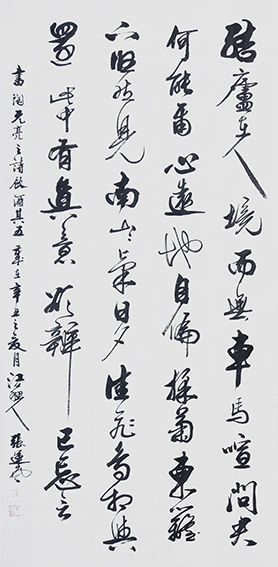 結廬在人境而無車馬喧問君
何能爾心遠地自偏採菊東籬
下悠然見南山々氣日夕佳飛鳥相與
還此中有真意欲辯已忘言
書陶元亮之詩飲酒其五歲在辛丑之夏月江人張運